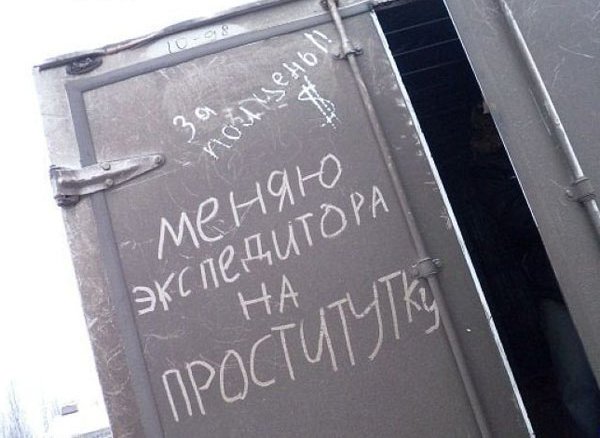 10-98
за
полцены!!
$
меняю
экспедитора
на
проститутку